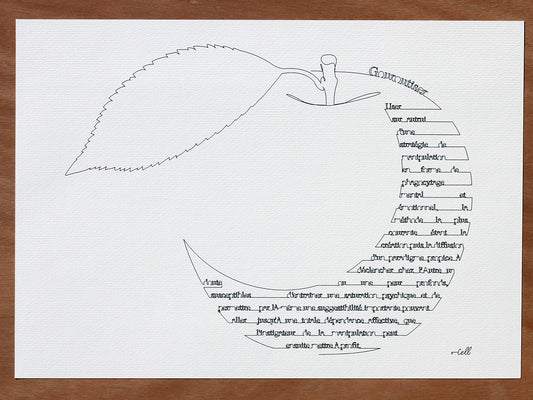 Gouroutiser
User
sur autrui
d'une
stratégie de
manipulation
en forme de
phagocytage
mental et
émotionnel, la
méthode la plus
courante étant la
création puis la diffusion
d'un paradigme propice à
déclencher chez l'Autre un
doute ou une peur profonds,
susceptibles d'entraîner une saturation psychique et de
permettre par là-même une suggestibilité importante pouvant
aller jusqu'à une totale dépendance affective, que
l'instigateur de la manipulation peut
ensuite mettre à profit.